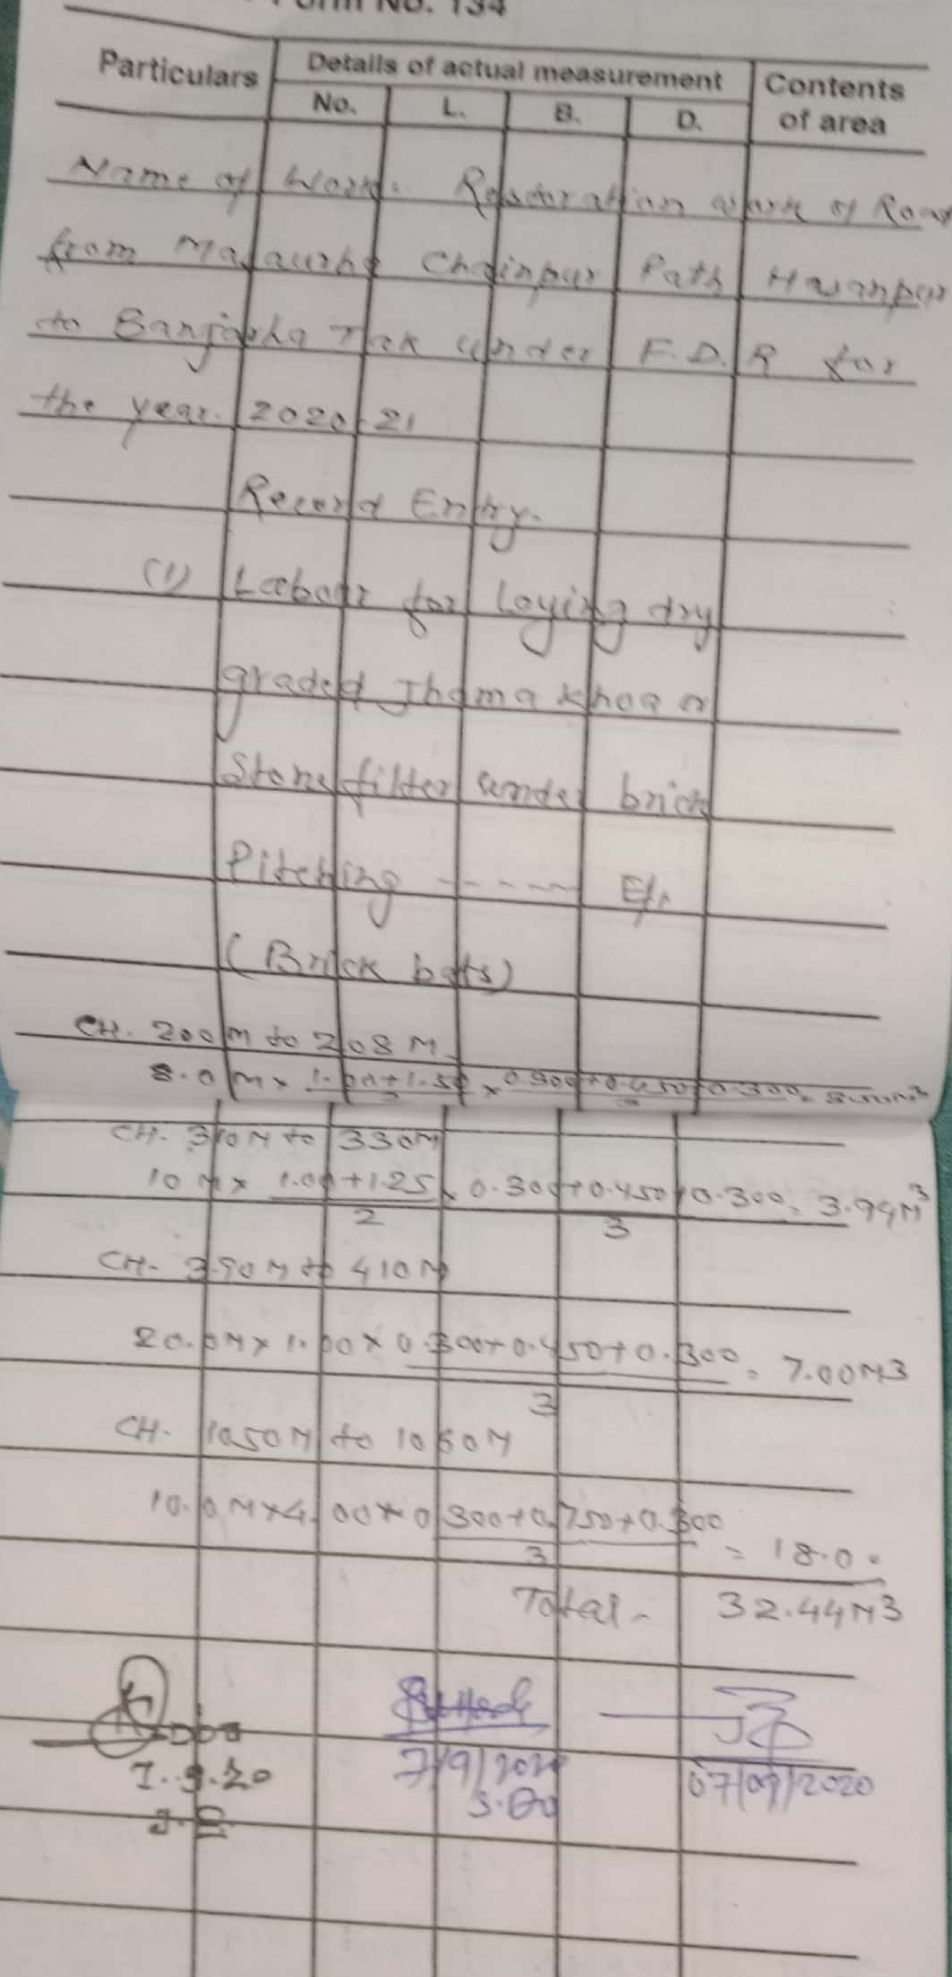 Form No. 134
Particulars Details of actual measurement Contents of area
No. L. B. D.
Name of Work:- Restoration work of Road
from Chainpur Path Hasanpur
to Banjaria Tak under F.D.R for
the year. 2020-21
Record Entry.
(1) Labour for laying dry
graded Jhama khoa or
Stone filter under brick
Pitching ------ E/I
(Brick bats)
CH. 200M to 208M
8.0M× 1.00+1.50/2 × 0.300+0.450+0.300/3 =
CH. 310M to 330M
10M× 1.00+1.25/2 × 0.300+0.450+0.300/3 = 3.94M3
CH- 390M to 410M
20.0M×1.00×0.300+0.450+0.300/3 = 7.00M3
CH. 1050M to 1060M
10.0M×4.00×0.300+0.750+0.300/3 = 18.0.
Total- 32.44M3
7.9.20 7/9/2020 07/09/2020
J.E S.DO